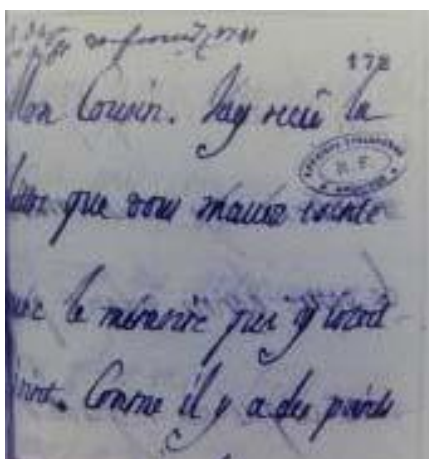 178
Mon Cousin. Jay receü la
R. F.
lettre que vous mauez ecritte
auec le memoire qui y etoit
joint. Comme il y a des points